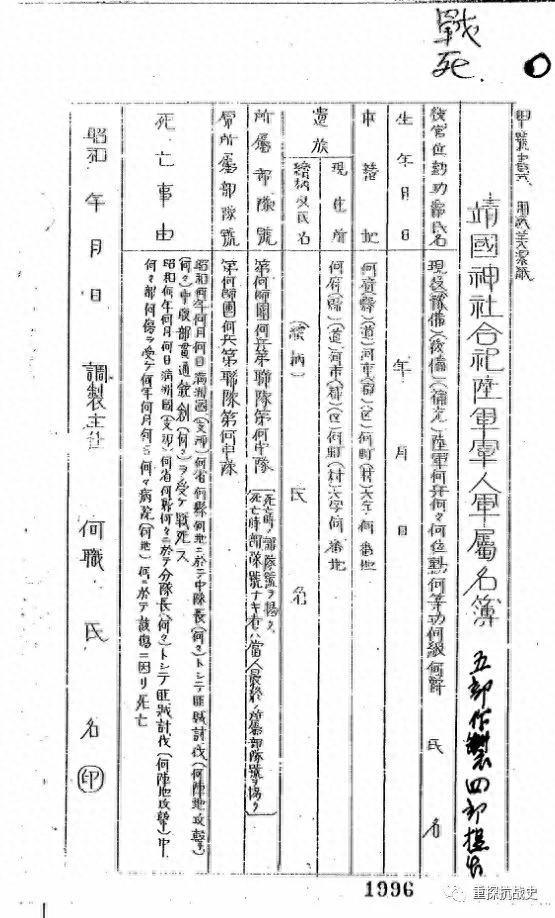 戰死.
甲號書式 用紙美濃紙
靖國神社合祀陸軍軍人軍屬名簿 五部作製四部提出
役官位勲功爵氏名 現役(豫備)(後備)(補充)陸軍何兵何々何位勲何等功何級何爵 氏 名
生年月日 年 月 日
本籍地 何府(縣)(道)何市(郡)(区)何町(村)大字何番地
遺族
現住所 何府(縣)(道)何市(郡)(区)何町(村)大字何番地
續柄及氏名 (續柄) 氏 名
所屬部隊號 第何師團何兵第聯隊第何中隊
死亡時ノ部隊號ヲ揭ク
死亡時部隊號ナキ者ハ當人最終ノ所屬部隊號ヲ揭ク
原所屬部隊號 第何師團何兵第聯隊第何中隊
死亡事由
昭和何年何月何日滿洲國(支那)何省何縣何地ニ於テ中隊長(何々)トシテ匪賊討伐(何陣地攻擊)
(何々)中腹部貫通銃創(何々)ヲ受ケ戰死ス
昭和何年何月何日滿洲國(支那)何省何縣何々ニ於テ分隊長(何々)トシテ匪賊討伐(何陣地攻擊)中
何々部何傷ヲ受ケ何年何月何日何々病院(何地)何ニ於テ該傷ニ因リ死亡
昭和 年 月 日 調製主任 何職 氏 名 印
1996
重探抗战史